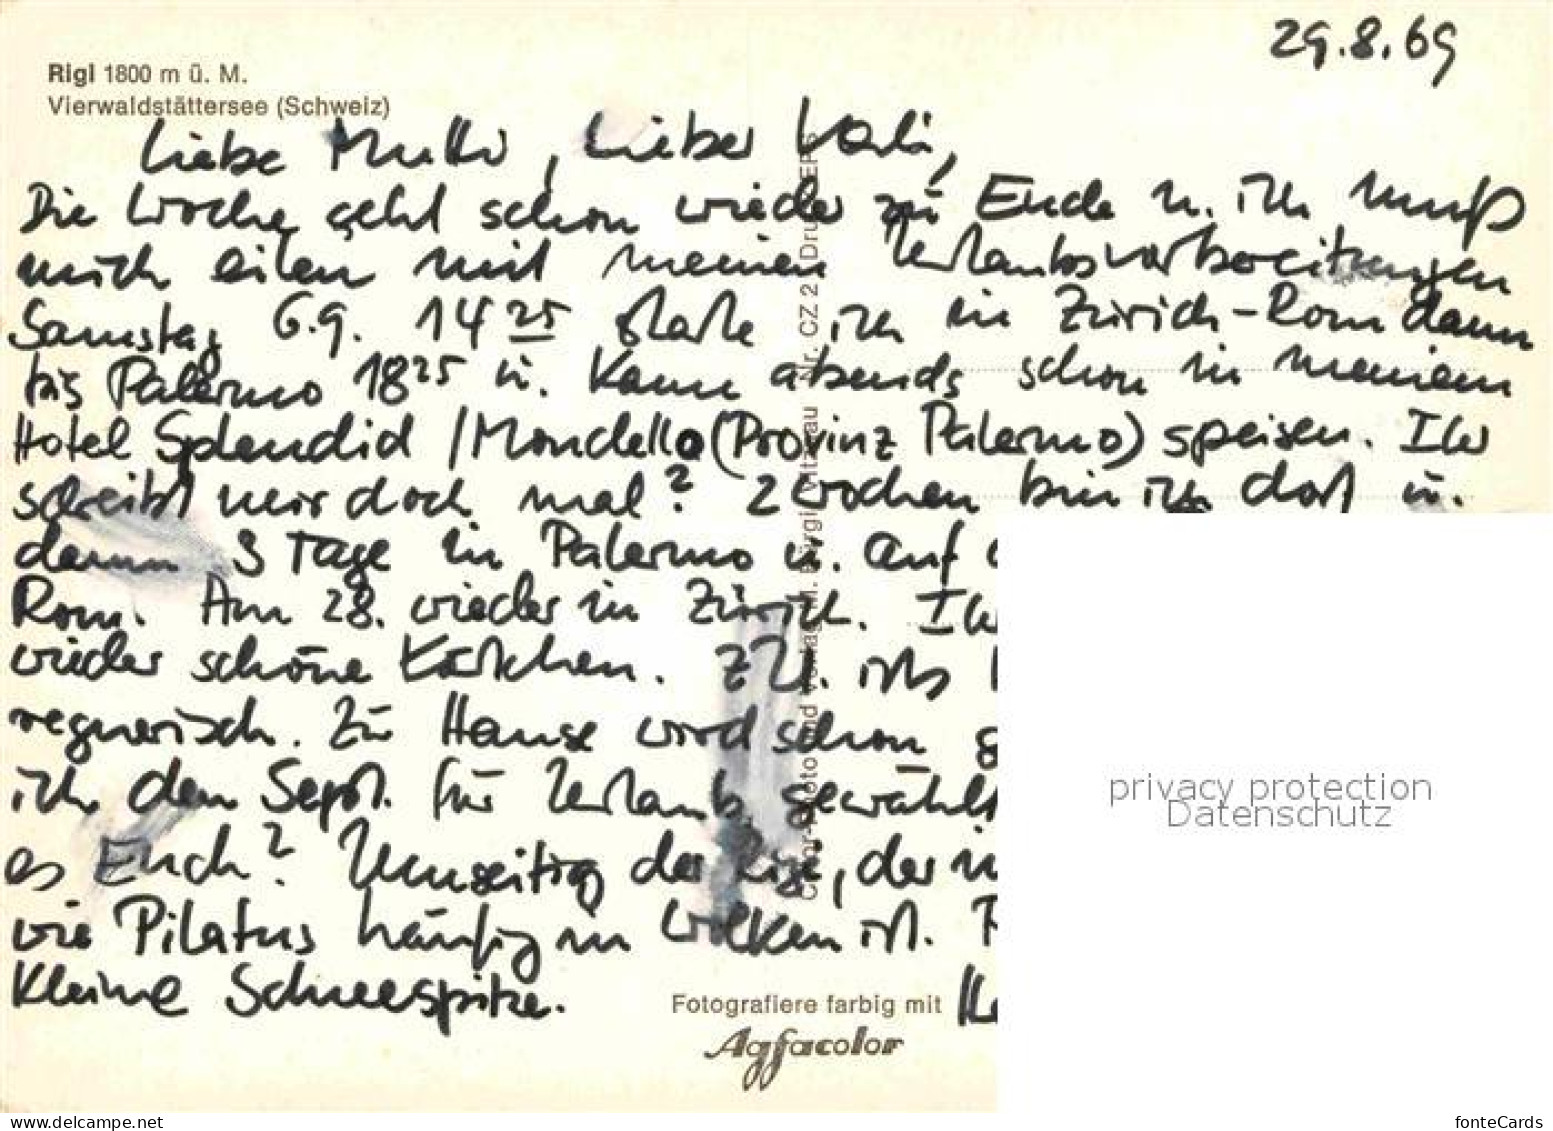 29.8.69
Rigi 1800 m ü. M.
Vierwaldstättersee (Schweiz)
Liebe Mutti, Lieber Vati,
Die Woche geht schon wieder zu Ende u. ich muß
mich eilen mit meinen Urlaubsvorbereitungen
Samstag 6.9. 14 25 starte ich in Zürich-Rom dann
bis Palermo 18 25 u. kann abends schon in meinem
Hotel Splendid /Mondello (Provinz Palermo) speisen. Ihr
schreibt mir doch mal? 2 Wochen bin ich dort u.
dann 3 Tage in Palermo u. auf
Rom. Am 28. wieder in Zürich.
wieder schöne Kärtchen. zZt. ists
regnerisch. Zu Hause wird schon
ich den Sept. für Urlaub gewählt
es Euch? Umseitig der Rigi, der
wie Pilatus häufig in Wolken ist.
Kleine Schneespitze.
Fotografiere farbig mit
Agfacolor
privacy protection
Datenschutz
fonteCards